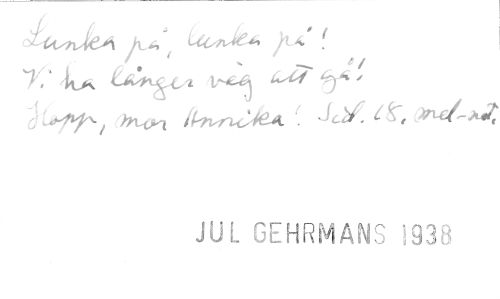 Lunka på, lunka på!
Vi ha långer väg att gå!
Hopp, mor Annika! Sid. 18. mel-not.
JUL GEHRMANS 1938